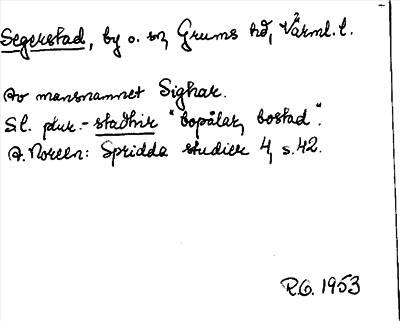 Segerstad, by o. sn, Grums hd, Värml. l.
Av mansnamnet Sighar.
Sl. plur. -stadhir "boplats, bostad".
A. Noreen: Spridda studier 4, s. 42.
R.G. 1953